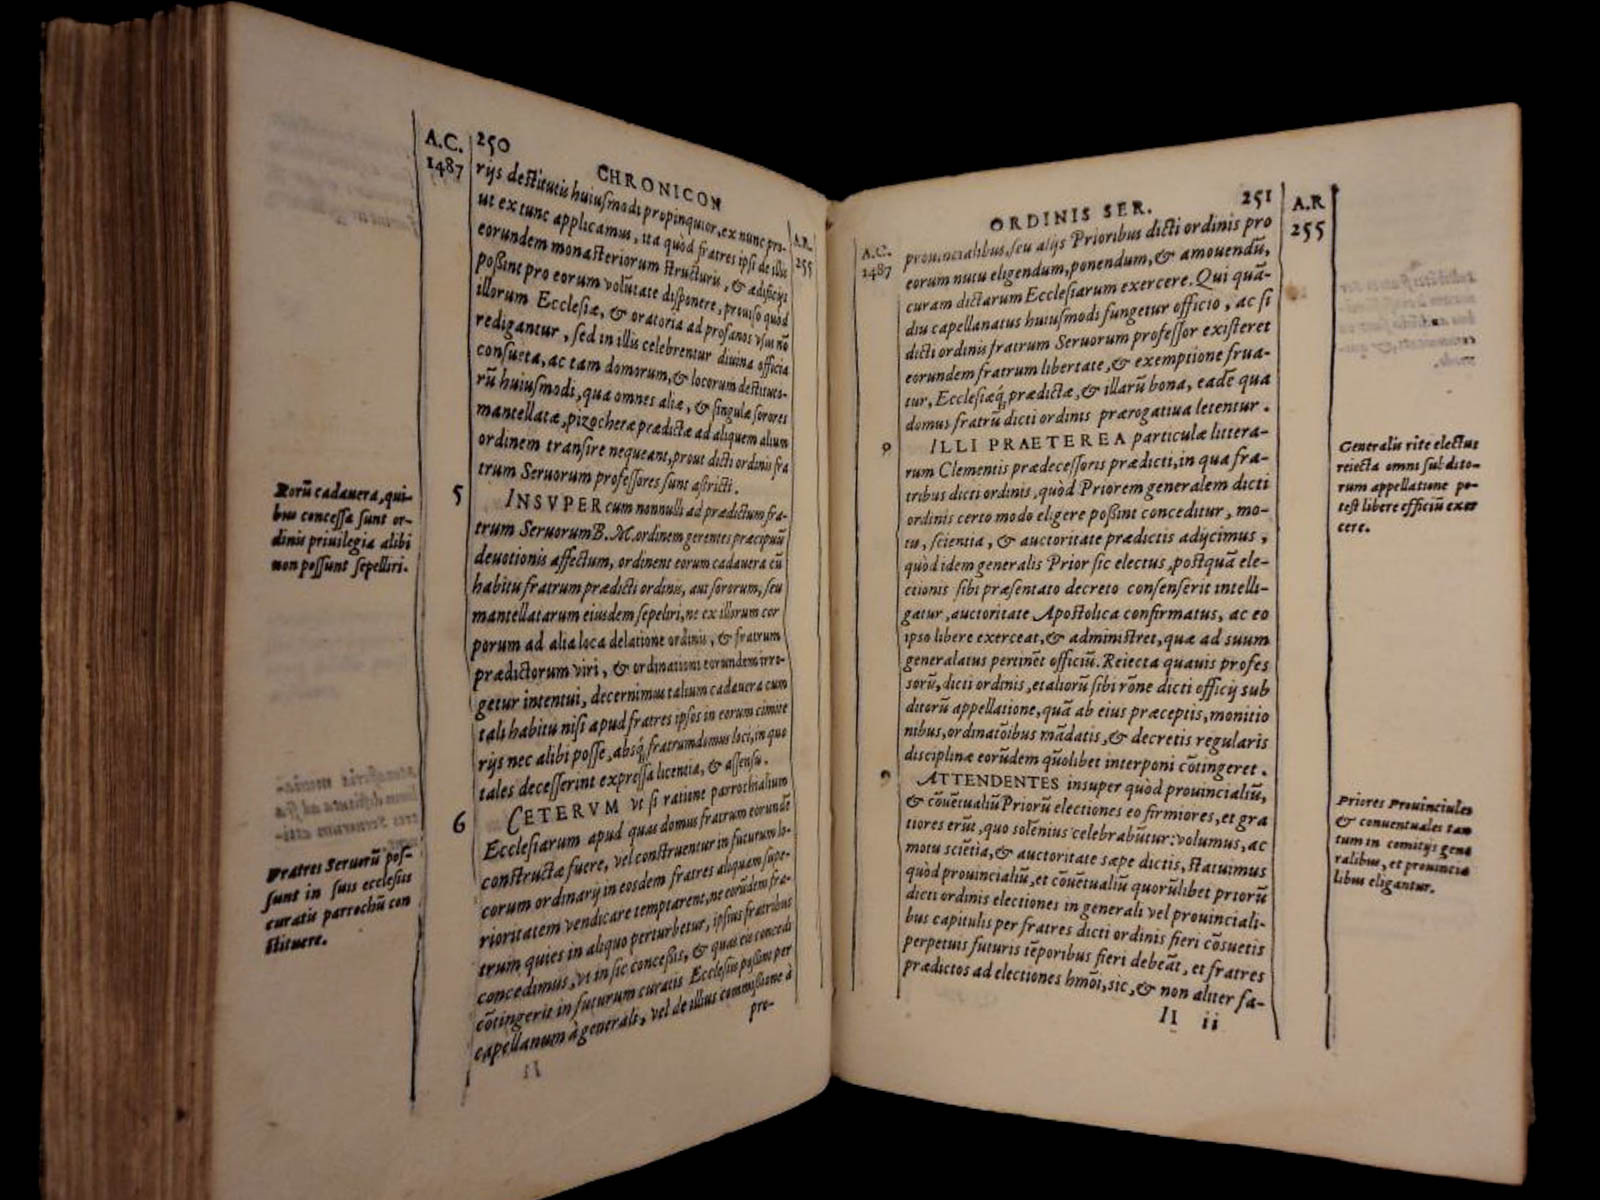 A.C. 250 CHRONICON
1487 A.R.
255
rijs destitutis huiusmodi propinquior, ex nunc pro-
ut ex tunc applicamus, ita quòd fratres ipsi de illis
eorundem monasteriorum structuris, & ædificijs
poßint pro eorum volūtate disponere, prouiso quòd
illorum Ecclesiæ, & oratoria ad profanos vsus nō
redigantur, sed in illis celebrentur diuina officia
consueta, ac tam domorum, & locorum destituto-
rū huiusmodi, qua omnes aliæ, & singulæ sorores
mantellatæ, pizocheræ prædictæ ad aliquem alium
ordinem transire nequeant, prout dicti ordinis fra
trum Seruorum professores sunt astricti.
5 INSVPER cum nonnulli ad prædictum fra-
trum Seruorum B. M. ordinem gerentes præcipuū
deuotionis affectum, ordinent eorum cadauera cū
habitu fratrum prædicti ordinis, aut sororum, seu
mantellatarum eiusdem sepeliri, ne ex illorum cor
porum ad alia loca delatione ordinis, & fratrum
prædictorum viri, & ordinationi eorundem irro-
getur intentui, decernimus talium cadauera cum
tali habitu nisi apud fratres ipsos in eorum cimite
rijs nec alibi posse, absq́; fratrum domus loci, in quo
tales decesserint expressa licentia, & assensu.
6 CETERVM vt si ratione parrochialium
Ecclesiarum apud quas domus fratrum eorundē
constructæ fuere, vel construentur in futurum lo-
corum ordinarij in eosdem fratres aliquam supe-
rioritatem vendicare temptarent, ne eorūdem fra-
trum quies in aliquo perturbetur, ipsius fratribus
concedimus, vt in sic concessis, & quas eis concedi
cōtingerit in futurum curatis Ecclesijs possint per
capellanum à generali, vel de illius commissione à
pro-
Eorū cadauera, qui-
bus concessa sunt or-
dinis priuilegia alibi
non possunt sepelliri.
Fratres Seruorū pos-
sunt in suis ecclesiis
curatis parrochū con
stituere.
ORDINIS SER. 251 A.R
A.C. 255
1487
prouincialibus, seu alijs Prioribus dicti ordinis pro
eorum nutu eligendum, ponendum, & amouendū,
curam dictarum Ecclesiarum exercere. Qui quā-
diu capellanatus huiusmodi fungetur officio, ac si
dicti ordinis fratrum Seruorum professor existeret
eorundem fratrum libertate, & exemptione frua-
tur, Ecclesiæq́; prædictæ, & illarū bona, eadē qua
domus fratrū dicti ordinis prærogatiua letentur.
ILLI PRAETEREA particulæ littera-
rum Clementis prædecessoris prædicti, in qua fra-
tribus dicti ordinis, quòd Priorem generalem dicti
ordinis certo modo eligere poßint conceditur, mo-
tu, scientia, & auctoritate prædictis adijcimus,
quòd idem generalis Prior sic electus, postquā ele-
ctionis sibi præsentato decreto consenserit intelli-
gatur, auctoritate Apostolica confirmatus, ac eo
ipso libere exerceat, & administret, quæ ad suum
generalatus pertinēt officiū. Reiecta quauis profes
sorū, dicti ordinis, et aliorū sibi rōne dicti officij sub
ditorū appellatione, quā ab eius præceptis, monitio
nibus, ordinatōibus mādatis, & decretis regularis
disciplinæ eorūdem quolibet interponi cōtingeret.
ATTENDENTES insuper quòd prouincialiū,
& cōuētualiū Priorū electiones eo firmiores, et gra
tiores erūt, quo solēnius celebrabūtur: volumus, ac
motu sciētia, & auctoritate sæpe dictis, statuimus
quòd prouincialiū, et cōuētualiū quorūlibet priorū
dicti ordinis electiones in generali vel prouinciali-
bus capitulis per fratres dicti ordinis fieri cōsuetis
perpetuis futuris tēporibus fieri debeāt, et fratres
prædictos ad electiones hmōi, sic, & non aliter fa-
II ii
Generalis rite electus
reiecta omni subdito-
rum appellatione po-
test libere efficiū exer
cere.
Priores Prouinciales
& conuentuales tan
tum in comitijs gene
ralibus, et prouincia
libus eligantur.